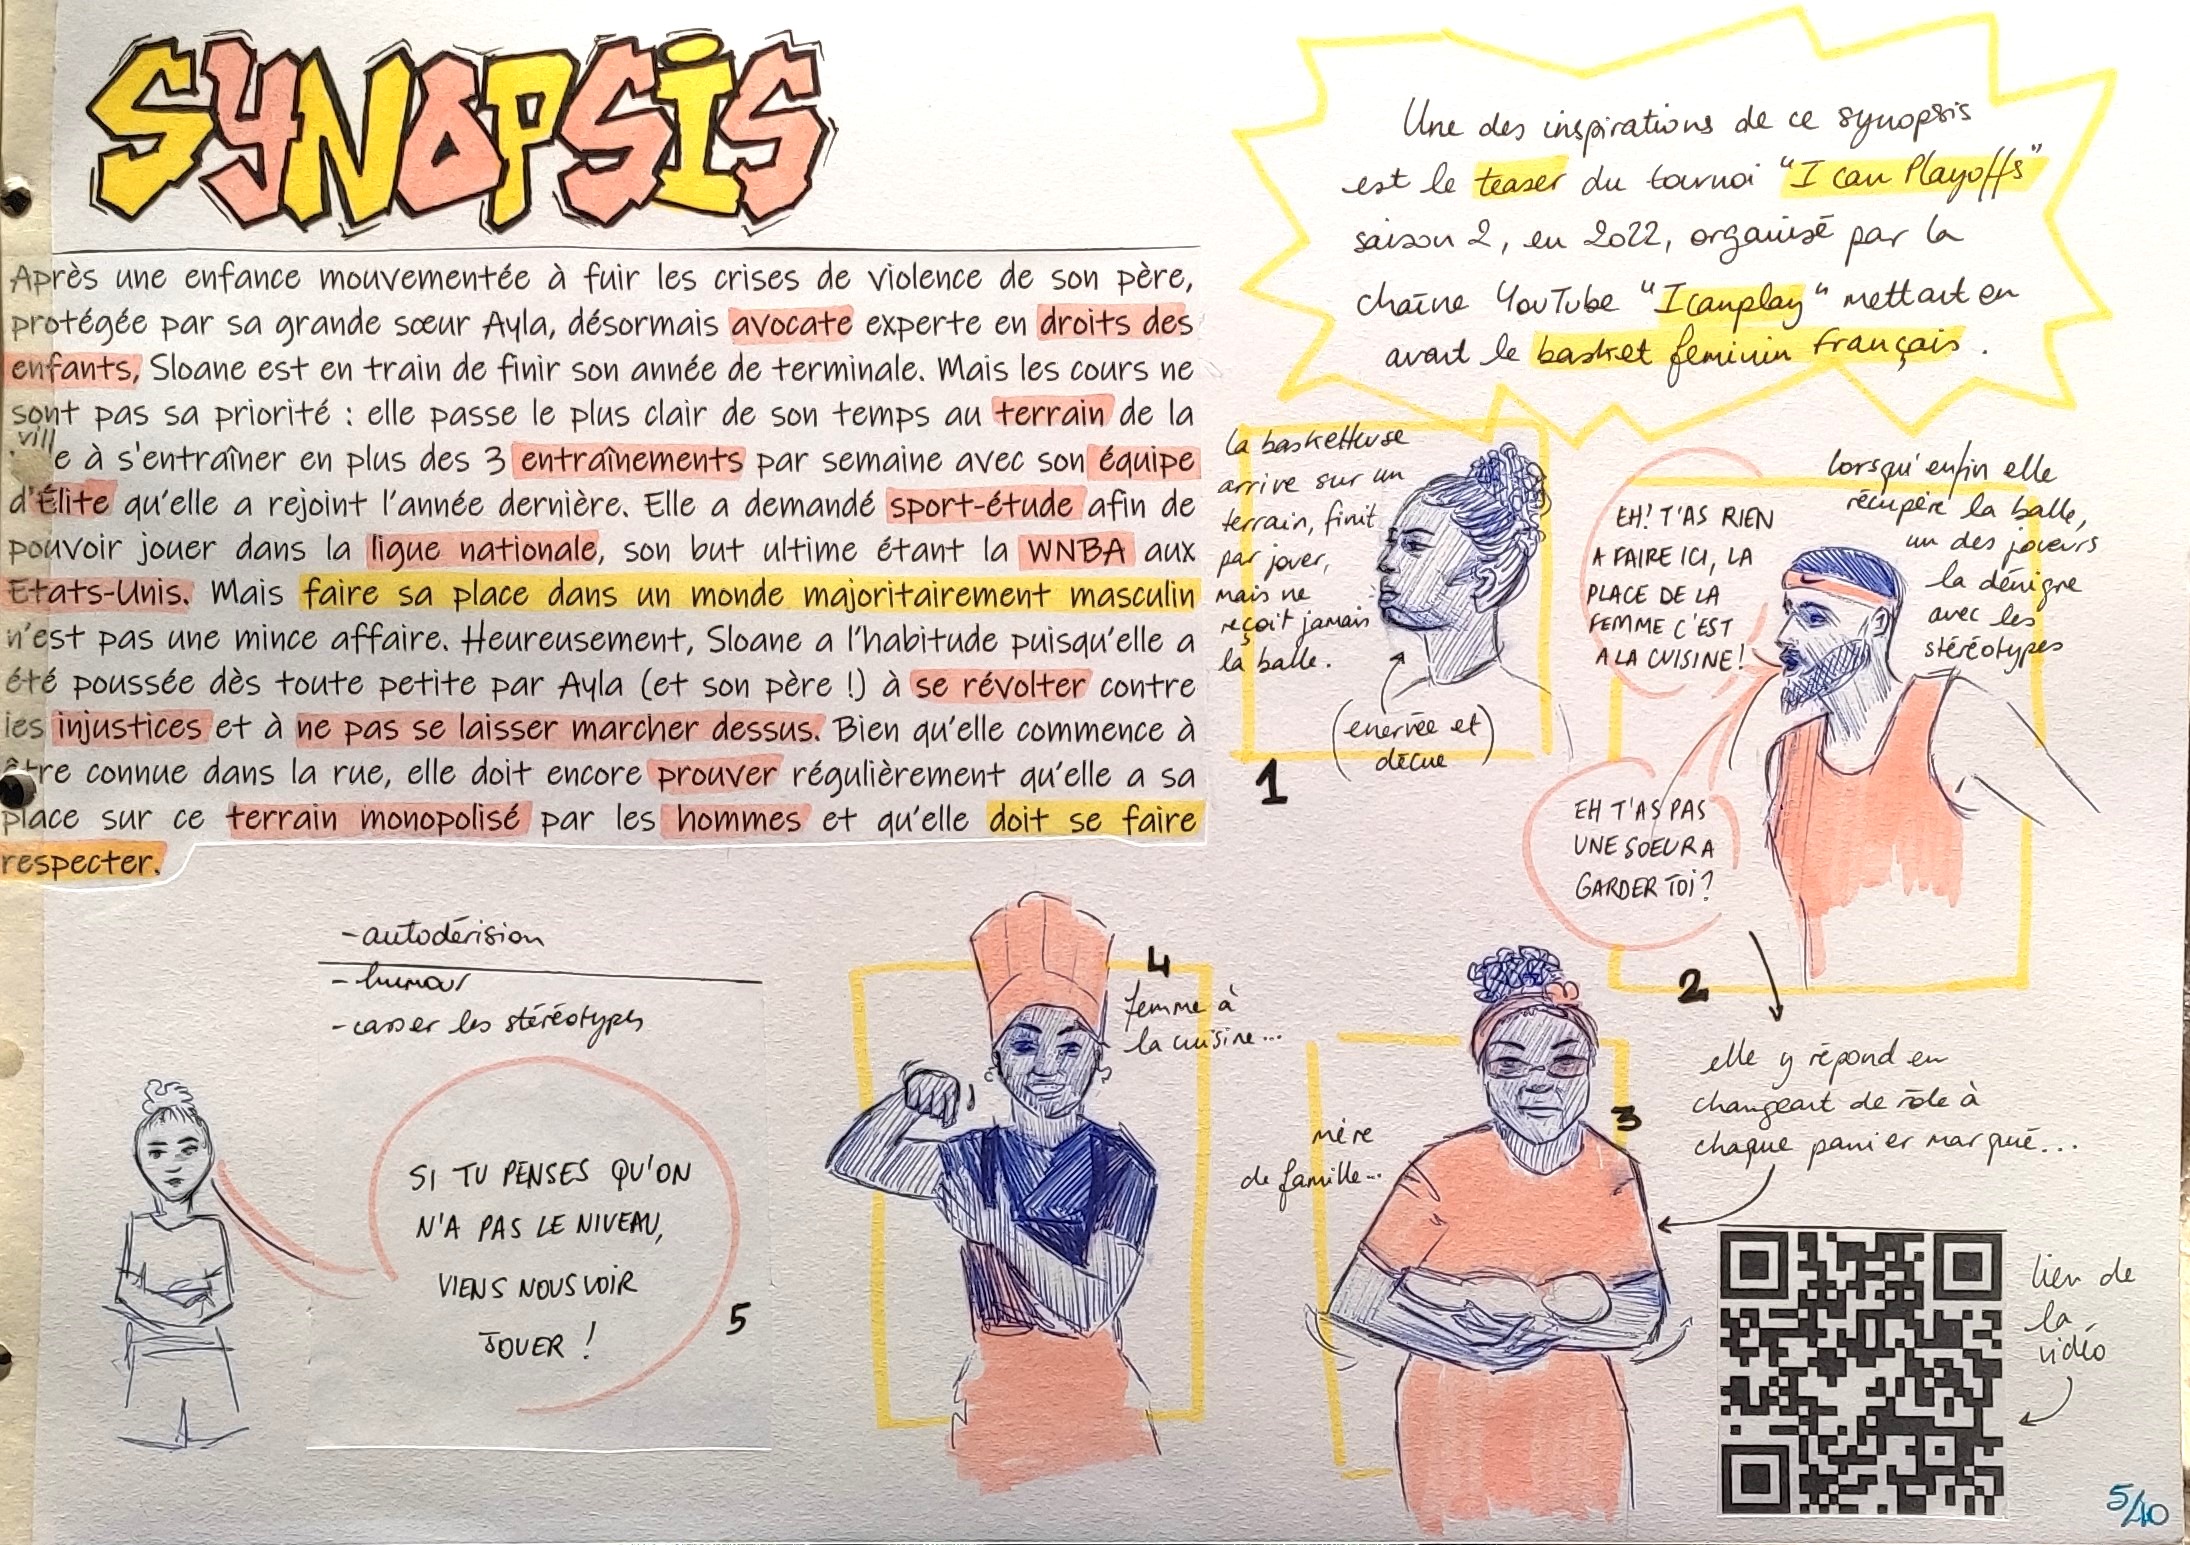 SYNOPSIS
Après une enfance mouvementée à fuir les crises de violence de son père,
protégée par sa grande sœur Ayla, désormais avocate experte en droits des
enfants, Sloane est en train de finir son année de terminale. Mais les cours ne
sont pas sa priorité : elle passe le plus clair de son temps au terrain de la
ville à s'entraîner en plus des 3 entraînements par semaine avec son équipe
d'Élite qu'elle a rejoint l'année dernière. Elle a demandé sport-étude afin de
pouvoir jouer dans la ligue nationale, son but ultime étant la WNBA aux
Etats-Unis. Mais faire sa place dans un monde majoritairement masculin
n'est pas une mince affaire. Heureusement, Sloane a l'habitude puisqu'elle a
été poussée dès toute petite par Ayla (et son père !) à se révolter contre
les injustices et à ne pas se laisser marcher dessus. Bien qu'elle commence à
être connue dans la rue, elle doit encore prouver régulièrement qu'elle a sa
place sur ce terrain monopolisé par les hommes et qu'elle doit se faire
respecter.
Une des inspirations de ce synopsis
est le teaser du tournoi "I can Playoffs"
saison 2, en 2022, organisé par la
chaîne YouTube "Icanplay" mettant en
avant le basket feminin français.
la basketteuse
arrive sur un
terrain, finit
par jouer,
mais ne
reçoit jamais
la balle.
(enervée et
décue)
1
EH! T'AS RIEN
A FAIRE ICI, LA
PLACE DE LA
FEMME C'EST
A LA CUISINE!
lorsqu'enfin elle
récupère la balle,
un des joueurs
la dénigre
avec les
stéréotypes
EH T'AS PAS
UNE SOEUR A
GARDER TOI?
2
elle y répond en
changeant de rôle à
chaque panier marqué...
3
mère
de famille...
4
femme à
la cuisine...
- autodérision
- humour
- casser les stéréotypes
SI TU PENSES QU'ON
N'A PAS LE NIVEAU,
VIENS NOUS VOIR
JOUER !
5
lien de
la
vidéo
5/10